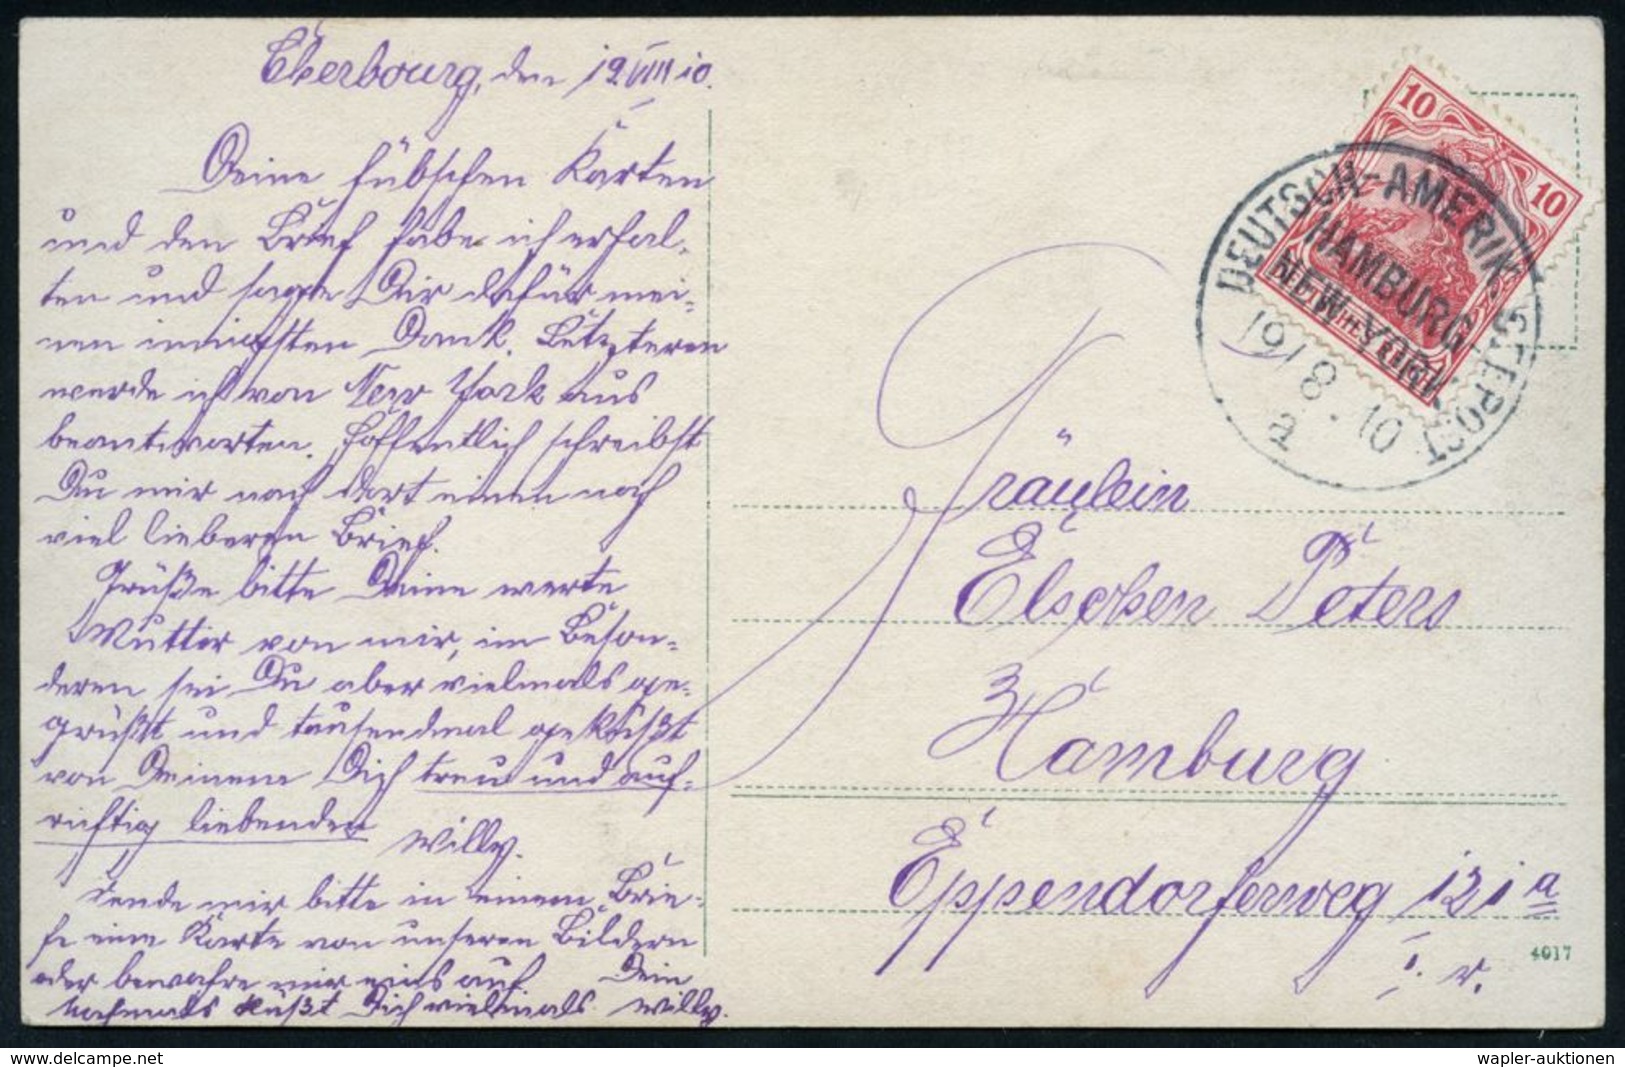 Cherbourg, den 19.VIII 10.
Deine hübschen Karten
und den Brief habe ich erhal-
ten und sage Dir dafür mei-
nen innigsten Dank. Letzteren
werde ich von New York aus
beantworten. Hoffentlich schreibst
Du mir nach dort einen noch
viel lieberen Brief.
Grüße bitte Deine werte
Mutter von mir, im Beson-
deren sei Du aber vielmals ge-
grüßt und tausendmal geküßt
von Deinem Dich treu und auf-
richtig liebenden
Willy.
Sende mir bitte in einem Brie-
fe eine Karte von unseren Bildern
oder bewahre mir eins auf Dein
Nochmals küßt Dich vielmals Willy.
10 10
DEUTSCH-AMERIK. SEEPOST
HAMBURG-
NEW-YORK
19/8.10
Fräulein
Elschen Peters
Hamburg
Eppendorferweg 121 a
I. r.
4017
delcampe.net
wapler-auktionen